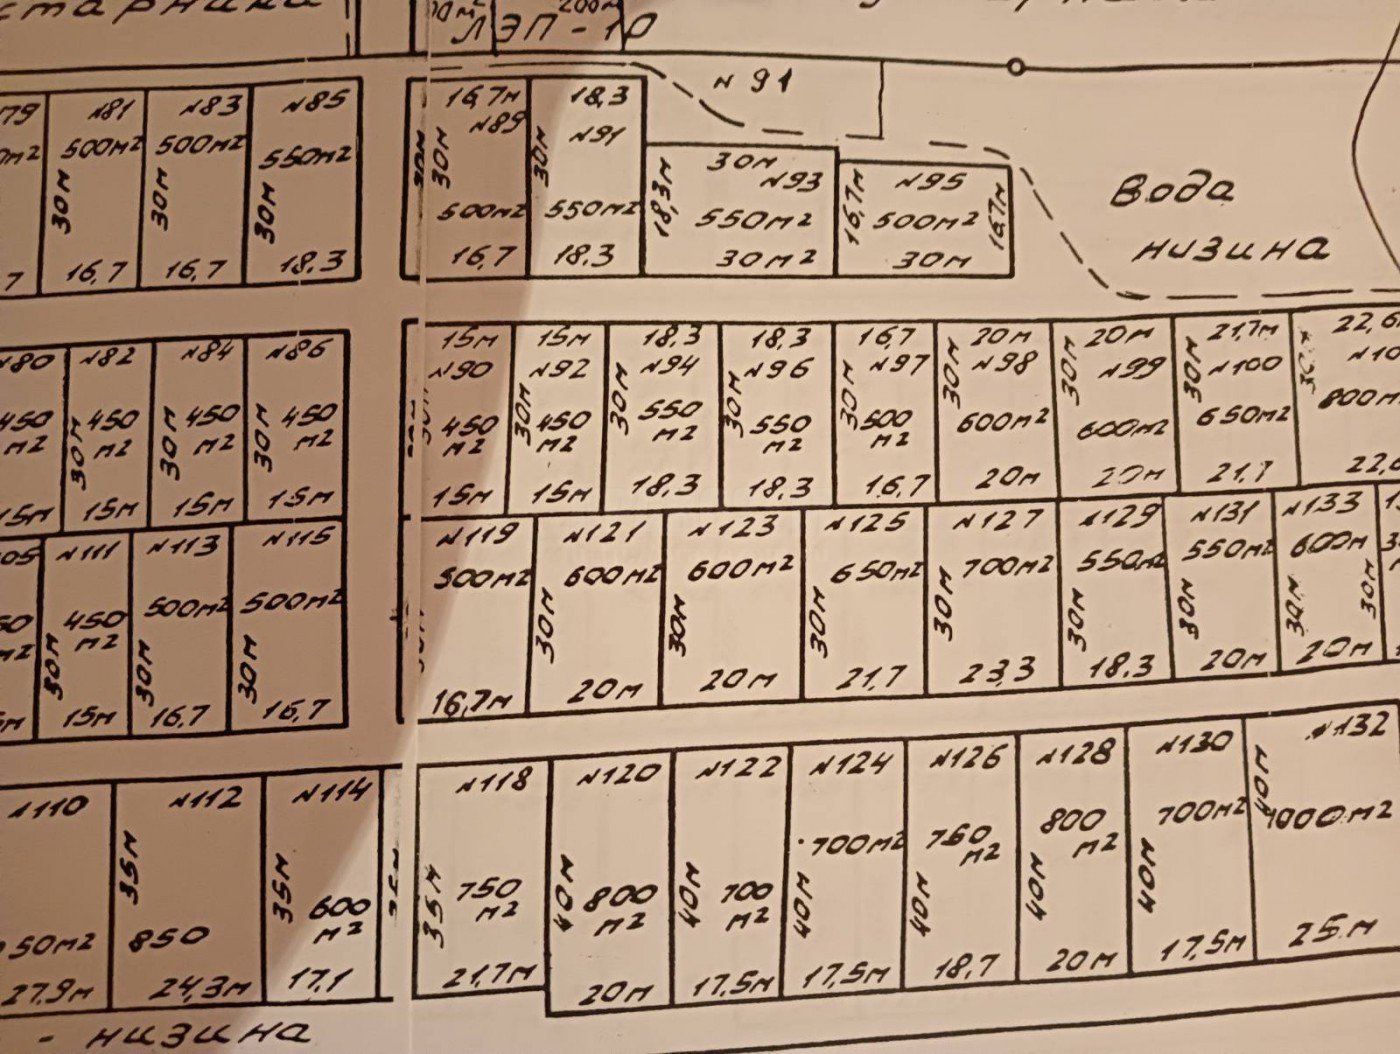 ЛЭП-10
200м
N91
N81
500м2
30м
16,7
N83
500м2
30м
16,7
N85
550м2
30м
18.3
16,7м
N89
30м
500м2
16,7
18,3
N91
30м
550м2
18.3
30м
N93
18,3м
550м2
30м2
N95
16,7м
500м2
16,7м
30м
Вода
низина
N80
450
м2
15м
N82
450
м2
30м
15м
N84
450
м2
30м
15м
N86
450
м2
30м
15м
15м
N90
450
м2
15м
15м
N92
30м
450
м2
15м
18.3
N94
30м
550
м2
18.3
18.3
N96
30м
550
м2
18.3
16,7
N97
30м
500
м2
16,7
20м
N98
30м
600м2
20м
20м
N99
30м
600м2
20м
21,7м
N100
30м
650м2
21,7
N111
450
м2
30м
15м
N113
500м2
30м
16,7
N115
500м2
30м
16,7
N119
500м2
16,7м
N121
600м2
30м
20м
N123
600м2
30м
20м
N125
650м2
30м
21,7
N127
700м2
30м
23,3
N129
550м2
30м
18.3
N131
550м2
30м
20м
N133
600м
30м
30м
20м
N110
27,9м
N112
35м
850
24,3м
N114
35м
600
м2
17,1
N118
35м
750
м2
21,7м
N120
40м
800
м2
20м
N122
40м
700
м2
17,5м
N124
700м2
40м
17,5м
N126
760
м2
40м
18,7
N128
800
м2
40м
20м
N130
700м2
40м
17,5м
N132
40м
1000м2
25м
- низина